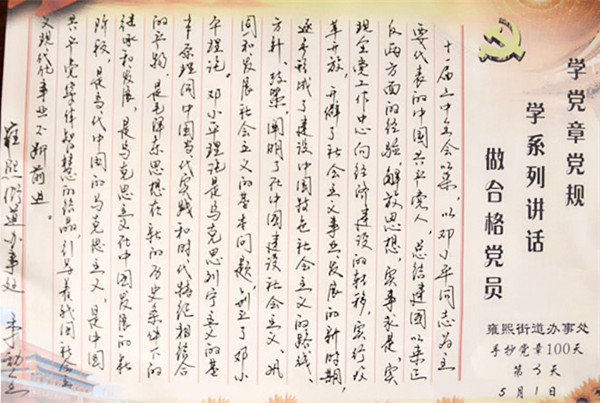 学党章党规
学系列讲话
做合格党员
雍熙街道办事处
手抄党章100天
第 天
5月1日
十一届三中全会以来，以邓小平同志为主
要代表的中国共产党人，总结建国以来正
反两方面的经验，解放思想，实事求是，实
现全党工作中心向经济建设的转移，实行改
革开放，开辟了社会主义事业发展的新时期，
逐步形成了建设中国特色社会主义的路线、
方针、政策，阐明了在中国建设社会主义、巩
固和发展社会主义的基本问题，创立了邓小
平理论。邓小平理论是马克思列宁主义的基
本原理同中国当代实践和时代特征相结合
的产物，是毛泽东思想在新的历史条件下的
继承和发展，是马克思主义在中国发展的新
阶段，是当代中国的马克思主义，是中国
共产党集体智慧的结晶，引导着我国社会主
义现代化事业不断前进。
雍熙街道办事处 李